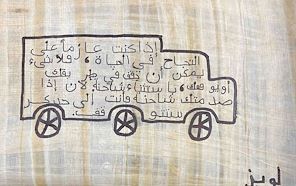 إذا كنت عازما على
النجاح في الحياة، فلا شيء
يمكن أن يقف في طريقك
أو يوقفك، باستثناء شاحنة لأن إذا
صدمتك شاحنة فأنت إلى حد كبير
ستتوقف.
لويز